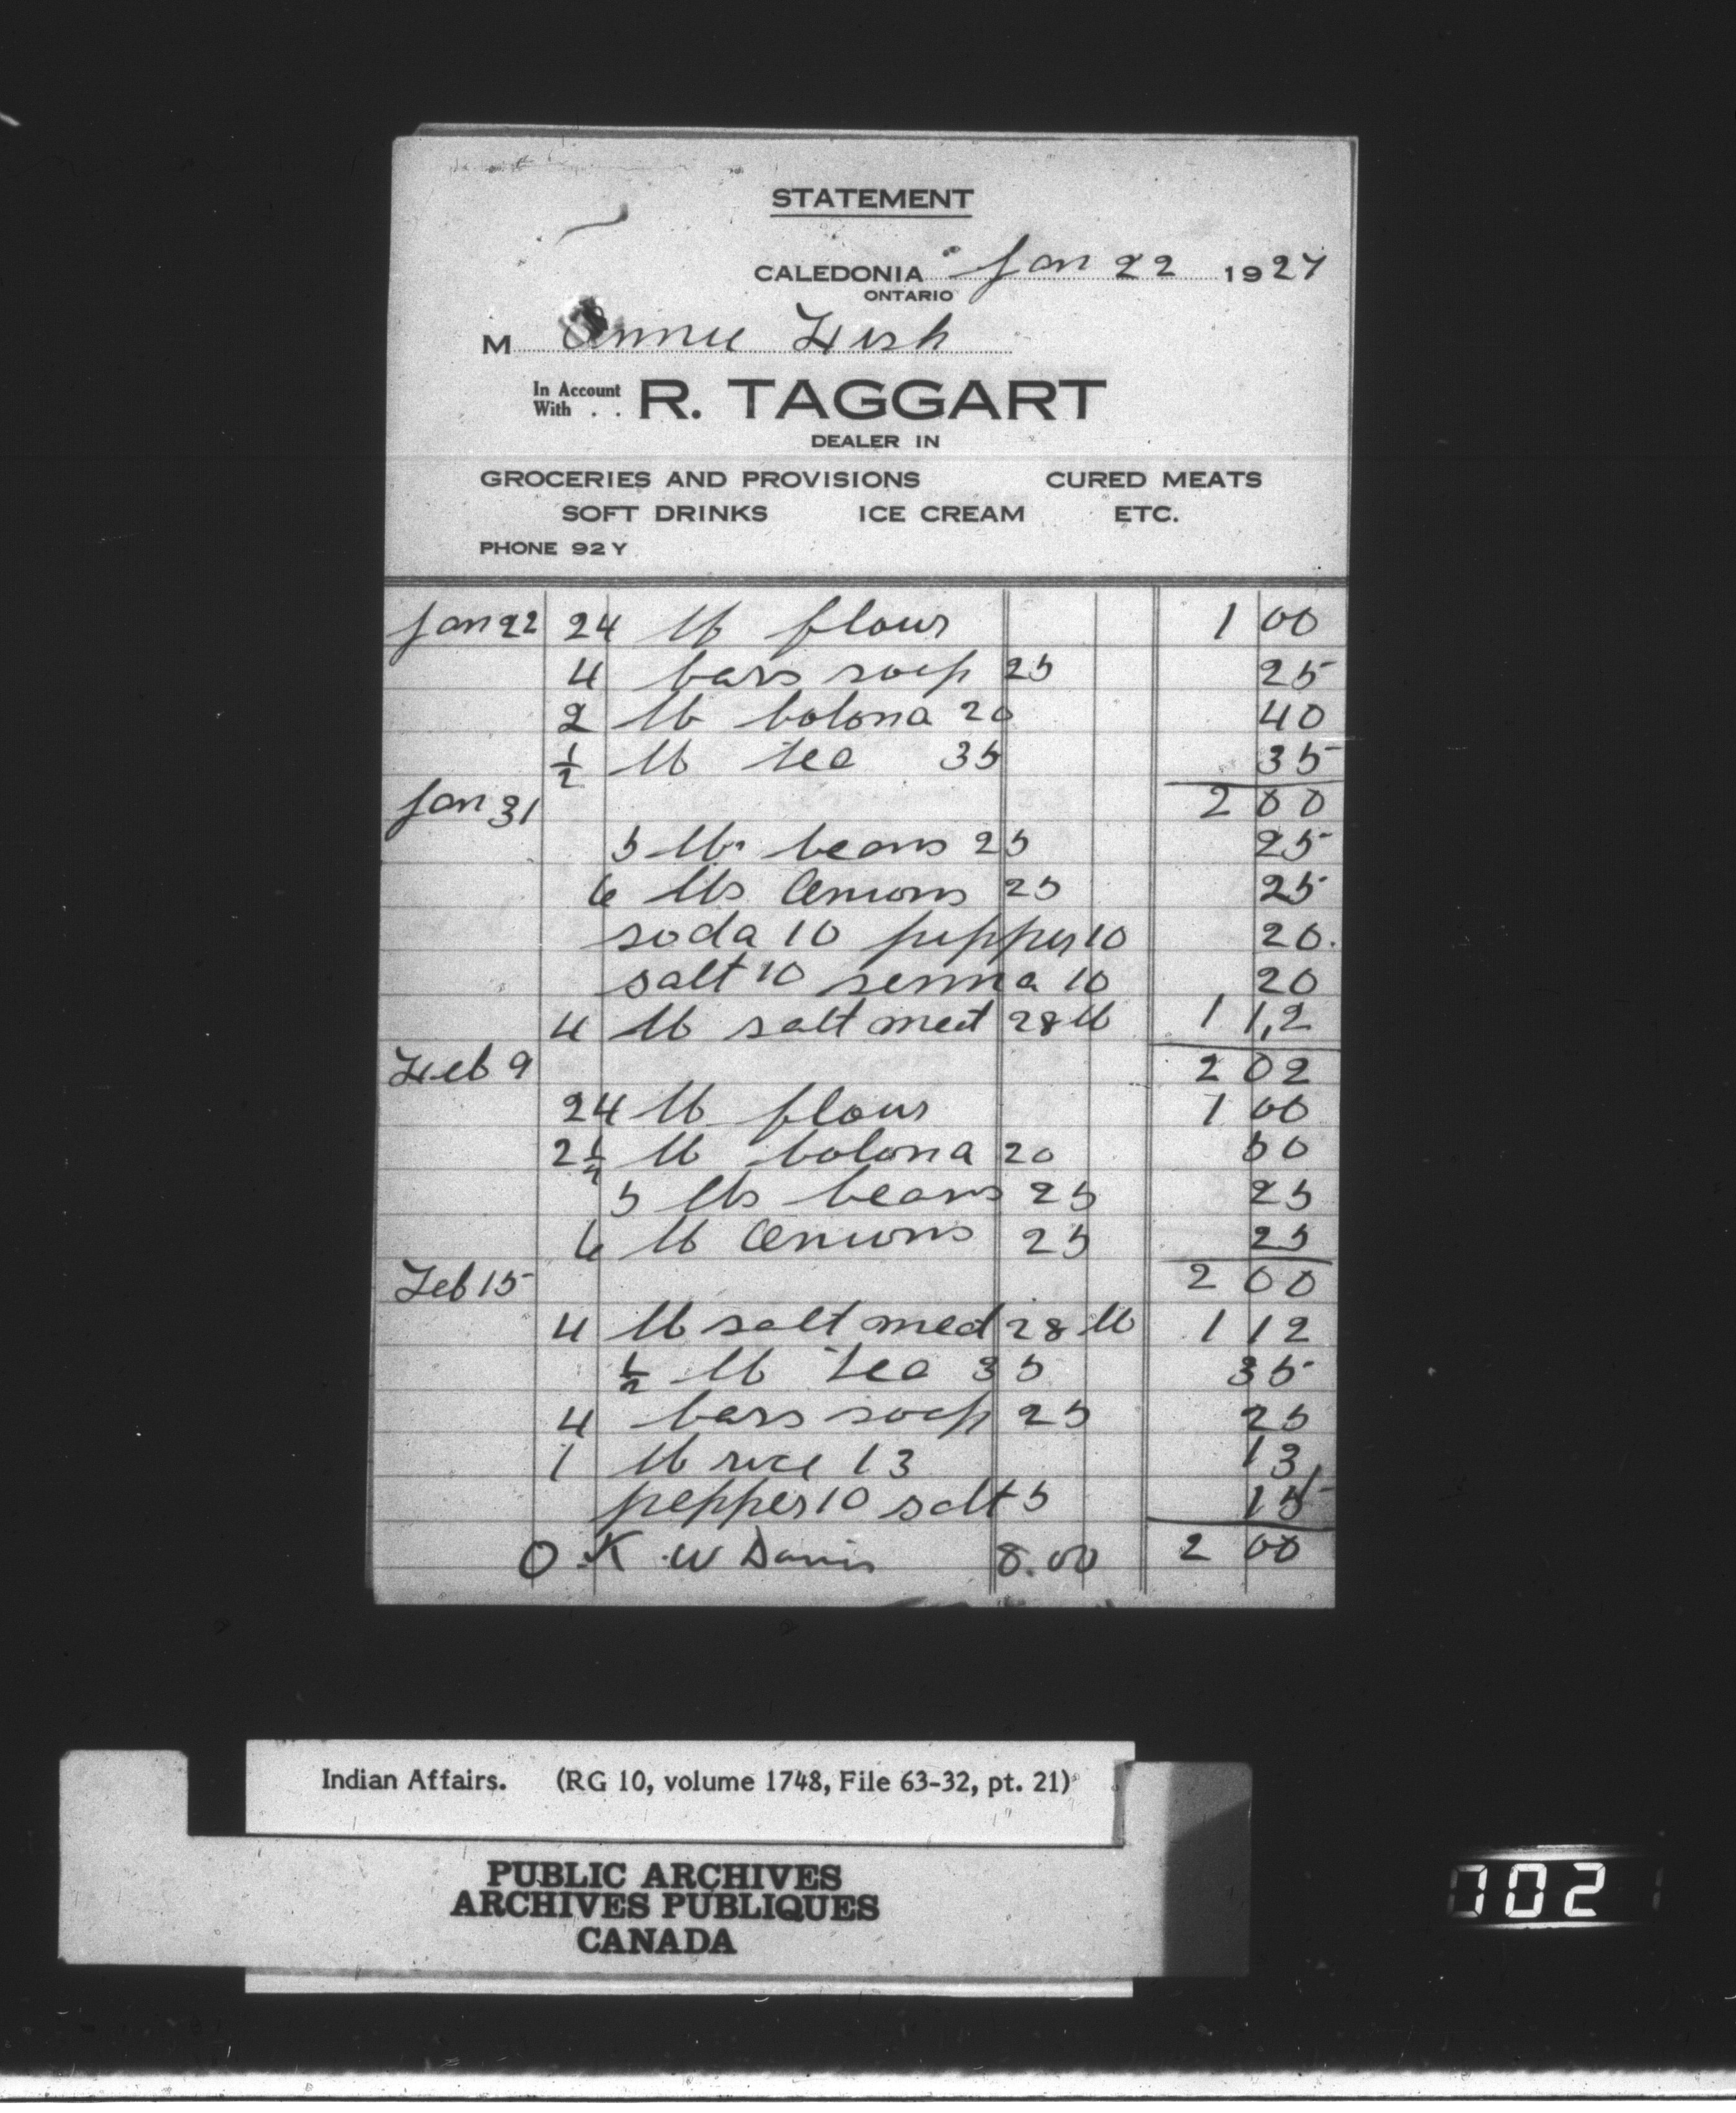 STATEMENT
CALEDONIA Jan 22 1927
ONTARIO
M Annie Fish
In Account With . . R. TAGGART
DEALER IN
GROCERIES AND PROVISIONS CURED MEATS
SOFT DRINKS ICE CREAM ETC.
PHONE 92 Y
Jan 22 24 lb flour 1 00
4 bars soap 25 25
2 lb bolona 20 40
1/2 lb tea 35 35
Jan 31 2 00
5 lbs beans 25 25
6 lbs Onions 25 25
soda 10 pepper 10 20.
salt 10 senna 10 20
4 lb salt meat 28 lb 1 12
Feb 9 2 02
24 lb flour 1 00
2 1/2 lb bolona 20 50
5 lbs beans 25 25
6 lb Onions 25 25
Feb 15 2 00
4 lb salt meat 28 lb 1 12
1/2 lb tea 35 35
4 bars soap 25 25
1 lb rice 13 13
pepper 10 salt 5 15
O K W Davis 8.00 2 00
Indian Affairs. (RG 10, volume 1748, File 63-32, pt. 21)
PUBLIC ARCHIVES
ARCHIVES PUBLIQUES
CANADA